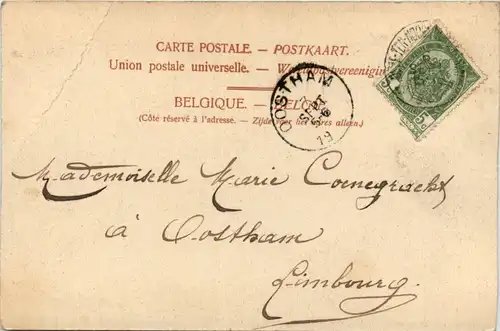 CARTE POSTALE. — POSTKAART.
Union postale universelle. — Wereldpostvereeniging
BELGIQUE. — BELGIË
(Côté réservé à l'adresse. — Zijde voor het adres alleen.)
OOSTHAM
SEPT
19
5
Mademoiselle Marie Coenegracht
à Oostham
Limbourg.